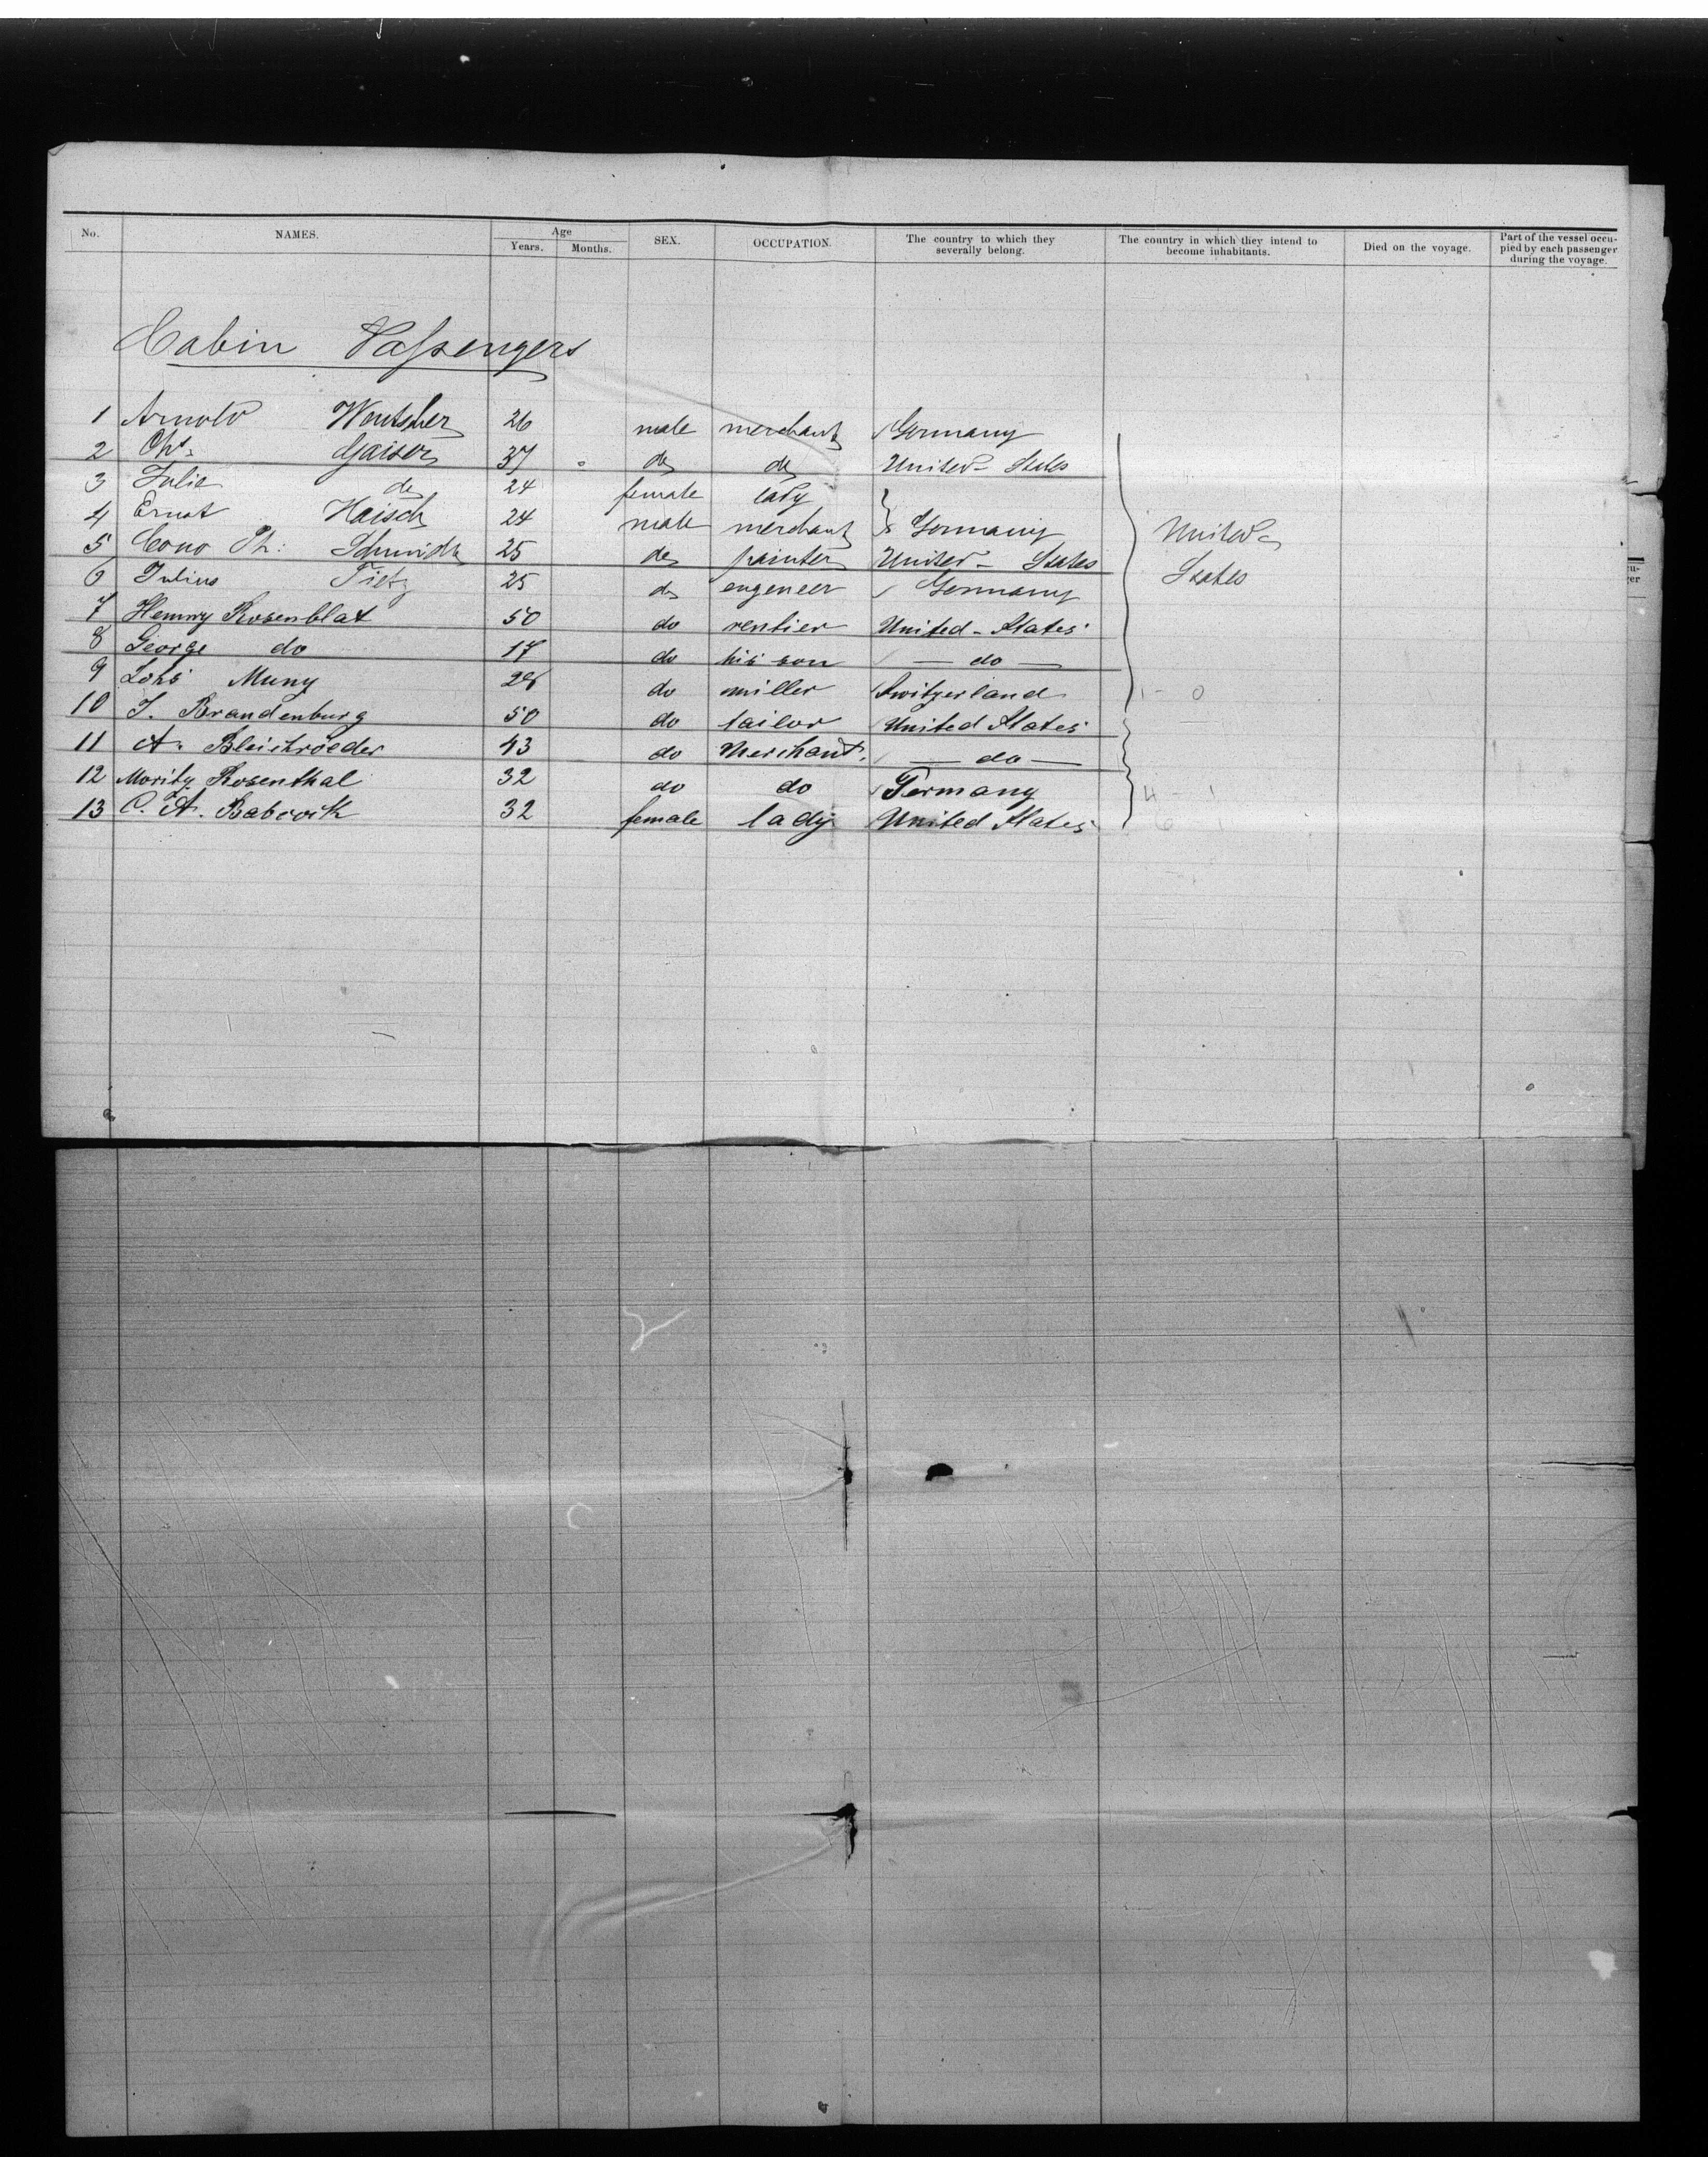 No. NAMES. Age Years. Months. SEX. OCCUPATION. The country to which they severally belong. The country in which they intend to become inhabitants. Died on the voyage. Part of the vessel occupied by each passenger during the voyage.
Cabin Passengers
1 Arnold 26 male merchant Germany
2 Chs. Gaiser 37 do do United States
3 Julie do 24 female lady
4 Ernst Haisch 24 male merchant } Germany
5 Cono Ph: Schmidt 25 do painter United States
6 Julius Tietz 25 do engeneer Germany
United States
7 Henny Rosenblat 50 do rentier United-States
8 George do 17 do his son — do —
9 Muny do miller Switzerland
10 J. Brandenburg 50 do tailor United States
11 A. Bleichroeder 43 do Merchant. — do —
12 Moritz Rosenthal 32 do do Germany
13 C. A. 32 female lady United States